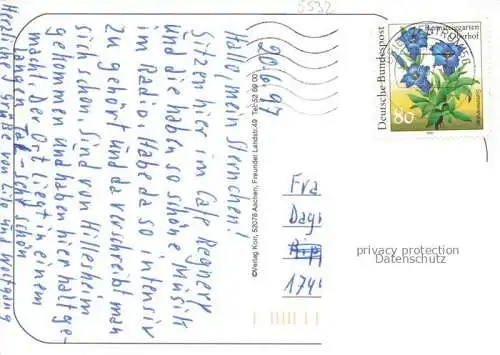 5532
20.6.97
Hallo, mein Sternchen!
Sitzen hier im Cafe
und die haben so schöne Musik
im Radio. Habe da so intensiv
zu gehört und da verschreibt man
sich schon. Sind von Hillesheim
gekommen und haben hier halt ge-
macht. Der Ort liegt in einem
langen Tal - sehr schön
Herzliche Grüße von Lilo und Wolfgang
©Verlag Korr, 52078 Aachen, Freunder Landstr.49 Tel: 52 69 00
Deutsche Bundespost
80
Fra
Dagm
174
privacy protection
Datenschutz